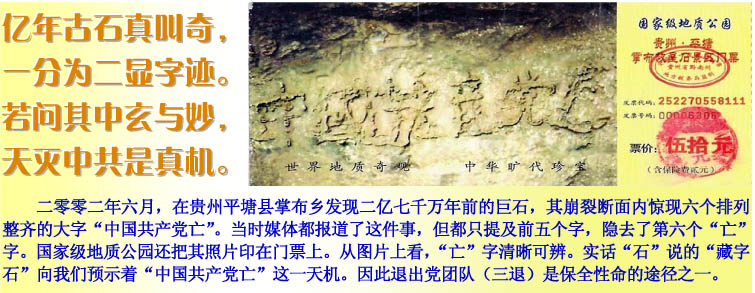 亿年古石真叫奇，
一分为二显字迹。
若问其中玄与妙，
天灭中共是真机。
世界地质奇观 中华旷代珍宝
国家级地质公园
贵州·平塘
掌布藏字石景区门票
发票代码：252270558111
发票号码：00006306
票价：伍拾元
（含保险费贰元）
二零零二年六月，在贵州平塘县掌布乡发现二亿七千万年前的巨石，其崩裂断面内惊现六个排列
整齐的大字“中国共产党亡”。当时媒体都报道了这件事，但都只提及前五个字，隐去了第六个“亡”
字。国家级地质公园还把其照片印在门票上。从图片上看，“亡”字清晰可辨。实话“石”说的“藏字
石”向我们预示着“中国共产党亡”这一天机。因此退出党团队（三退）是保全性命的途径之一。